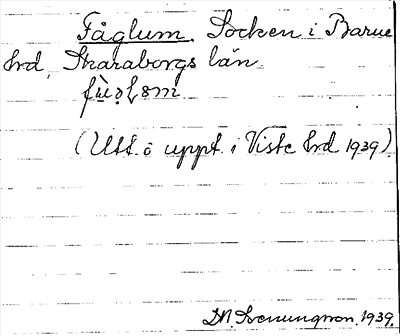 Fåglum. Socken i Barne
hrd, Skaraborgs län.
(Utt. o uppt. i Viste hrd 1939)
D.N. Svenungsson. 1939.